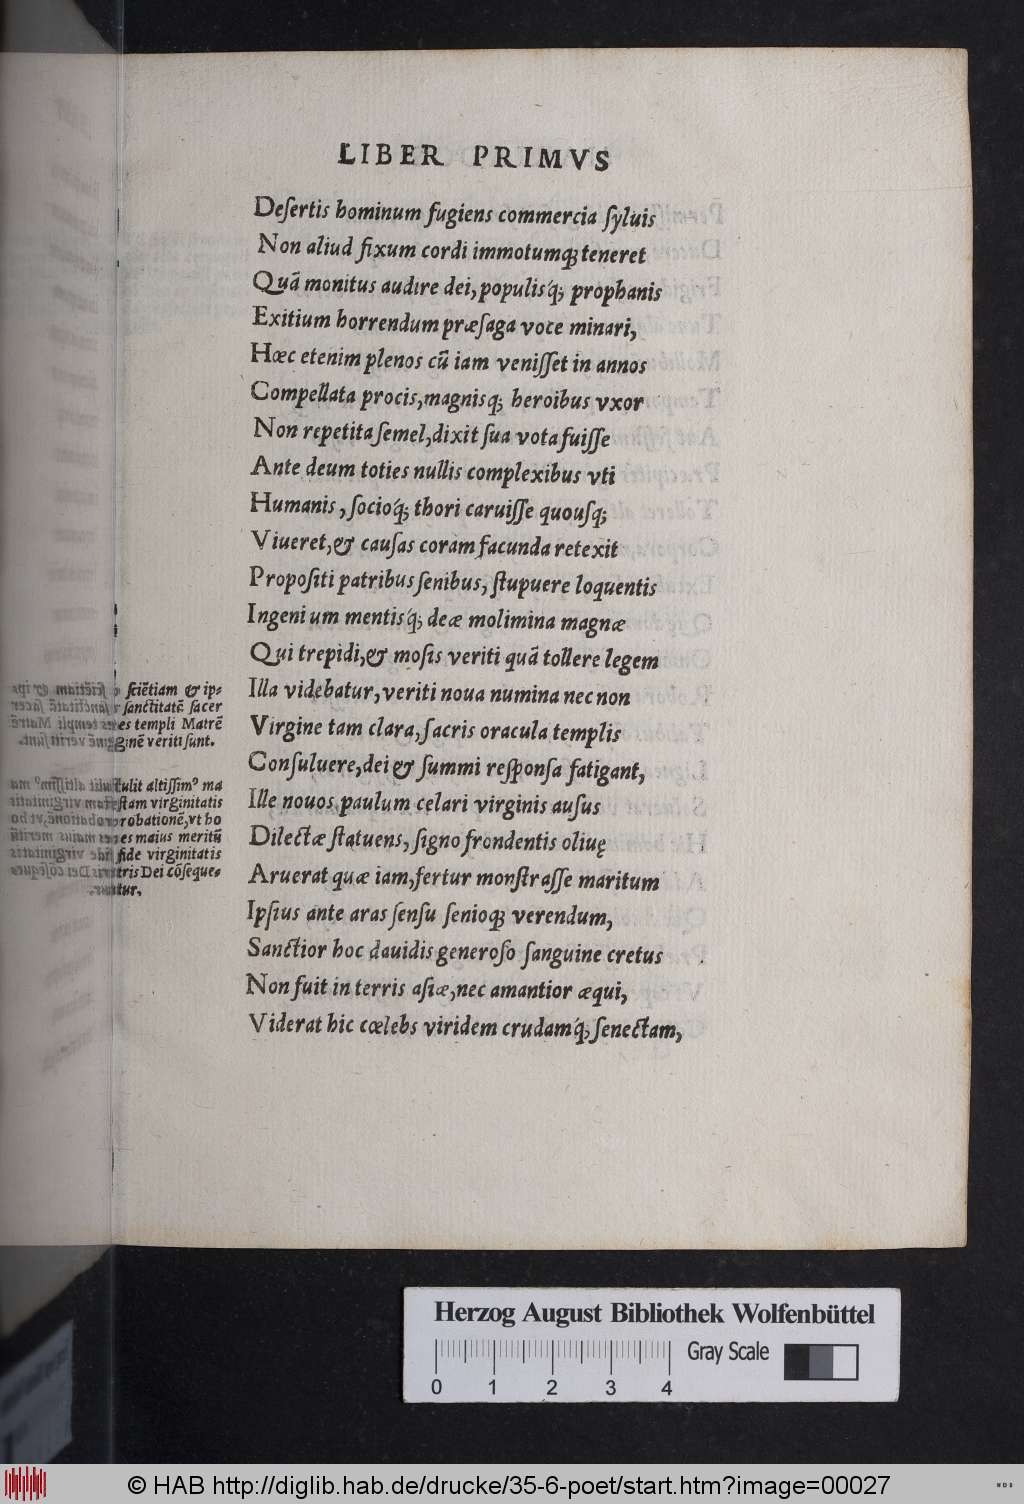 LIBER PRIMVS
Deſertis hominum fugiens commercia ſyluis
Non aliud fixum cordi immotumq; teneret
Quã monitus audire dei, populisq́; prophanis
Exitium horrendum præſaga voce minari,
Hæc etenim plenos cũ iam veniſſet in annos
Compellata procis, magnisq; heroibus vxor
Non repetita ſemel, dixit ſua vota fuiſſe
Ante deum toties nullis complexibus vti
Humanis, ſocioq́; thori caruiſſe quouſq;
Viueret, & cauſas coram facunda retexit
Propoſiti patribus ſenibus, ſtupuere loquentis
Ingeni um mentisq́; deæ molimina magnæ
Qui trepidi, & moſis veriti quã tollere legem
Illa videbatur, veriti noua numina nec non
Virgine tam clara, ſacris oracula templis
Conſuluere, dei & ſummi reſponſa fatigant,
Ille nouos paulum celari virginis auſus
Dilectæ ſtatuens, ſigno frondentis oliuę
Aruerat quæ iam, fertur monſtraſſe maritum
Ipſius ante aras ſenſu ſenioq; verendum,
Sanctior hoc dauidis generoſo ſanguine cretus
Non fuit in terris aſiæ, nec amantior æqui,
Viderat hic cœlebs viridem crudamq́; ſenectam,
ſciẽtiam & ip-
ſanctitatẽ ſacer
es templi Matrẽ
ginẽ veriti ſunt.
tulit altiſſim⁹ ma
ſtam virginitatis
robationẽ, vt ho
es maius meritũ
fide virginitatis
tris Dei cõſeque-
tur.
Herzog August Bibliothek Wolfenbüttel
Gray Scale
0 1 2 3 4
© HAB http://diglib.hab.de/drucke/35-6-poet/start.htm?image=00027